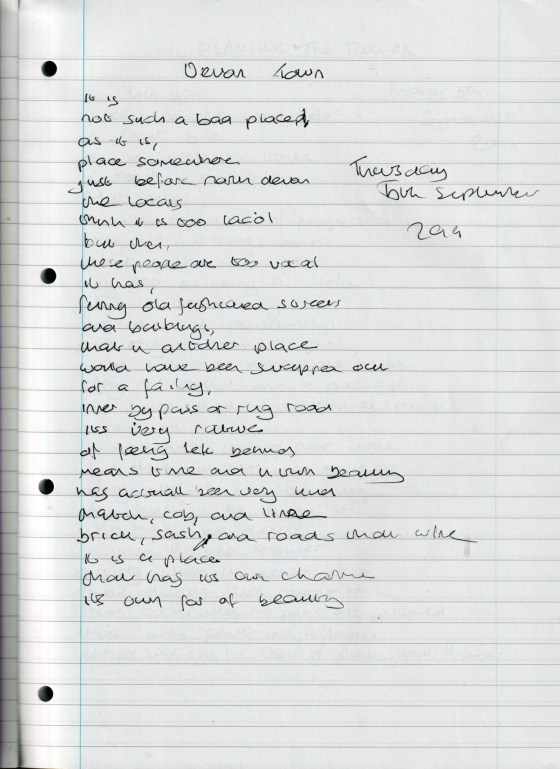 Devon Town
it is
not such a bad place
as it is,
place somewhere
just before north devon
Thursday
the locals
September
think it is too local
but then,
these people are too vocal
it has,
funny old fashioned streets
and buildings,
that in another place
would have been swapped out
for a
inner bypass or ring road
its very nature
of being left behind
means time and in turn beauty
has actuall been very kind
thatch, cob, and lime
brick, sash, and roads that
it is a place
that has its own charme
its own for of beauty